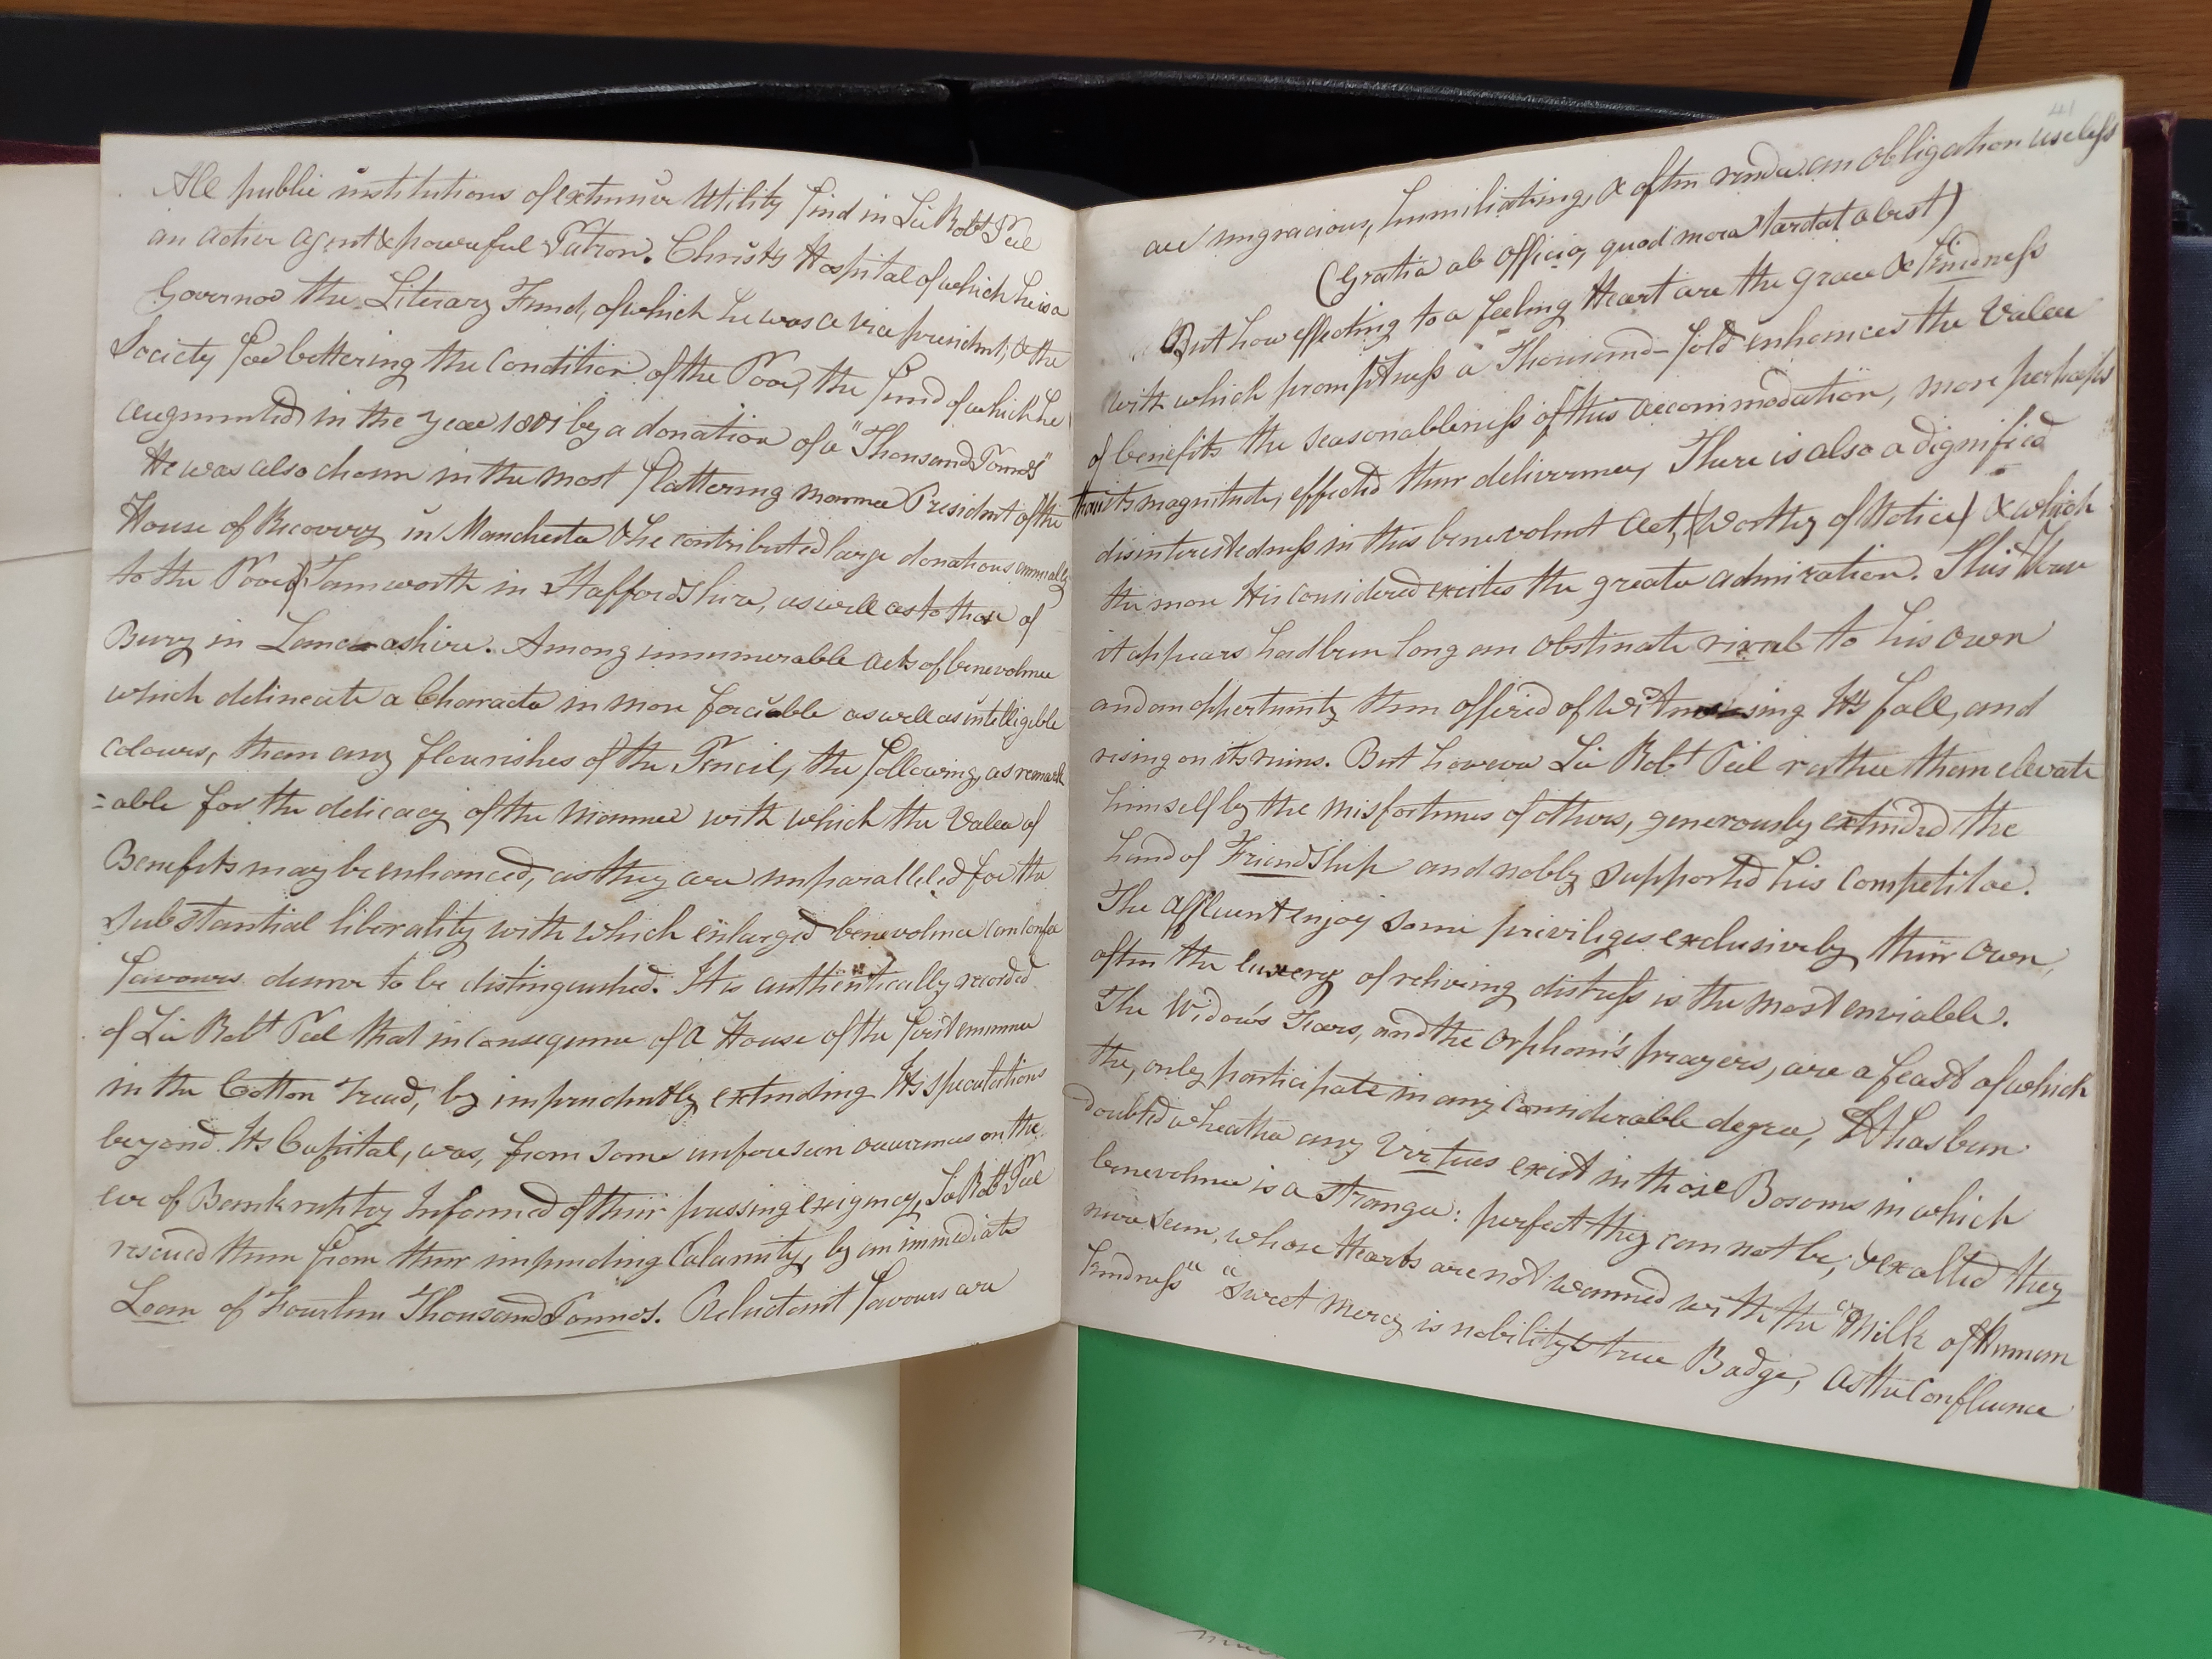 All public institutions of extensive Utility find in Sir Robt Peel
an active agent & powerful Patron. Christs Hospital of which he is a
Governor the Literary Fund, of which he was a vice president, & the
Society for bettering the Condition of the Poor, the fund of which he
augmented in the year 1801 by a donation of a "Thousand Pounds"
He was also chosen in the most flattering manner President of the
House of Recovery in Manchester & he contributed large donations annually
to the Poor of Tamworth in Staffordshire, as well as to those of
Bury in Lancashire. Among innumerable acts of benevolence
which delineate a Character in more forcible as well as intelligible
colours, than any flourishes of the Pencil, the following, as remark
=able for the delicacy of the manner with which the Value of
Benefits may be enhanced, as they are unparalleled for the
substantial liberality with which enlarged benevolence can confer
favours deserve to be distinguished. It is authentically recorded
of Sir Robt Peel that in consequence of a House of the first eminence
in the Cotton Trade, by imprudently extending Its speculations
beyond Its Capital, was, from some unforeseen occurrences on the
eve of Bankruptcy Informed of their pressing exigency, Sir Robt Peel
rescued them from their impending Calamity, by an immediate
Loan of Fourteen Thousand Pounds. Reluctant favours are
41
are ungracious, humiliating, & often render an obligation useless
(Gratia ab officio, quod mora tardat abest)
But how effecting to a feeling Heart are the grace & kindness
with which promptness a Thousand-fold enhances the Value
of benefits the seasonableness of this accommodation, more perhaps
than its magnitude, effected their deliverence, There is also a dignified
disinterestedness in this benevolent act, (Worthy of Notice) & which
the more it is considered excites the greater admiration. This House
it appears had been long an obstinate rival to his own
and an oppertunity then offered of Witnessing Its fall, and
rising on its ruins. But however Sir Robt Peel rather than elevate
himself by the misfortunes of others, generously extended the
hand of Friendship and nobly supported his Competitor.
The affluent enjoy some priviliges exclusively their own,
often the luxery of reliving distress is the most enviable.
The Widow's Tears, and the Orphan's prayers, are a feast of which
the, only participate in any considerable degree, It has been
doubted wheather any virtues exist in those Bosoms in which
benevolence is a stranger: perfect they can not be, & exalted they
never seem, whose Hearts are not warmed with the "Milk of Human
kindness" "sweet mercy is nobility's true Badge, as the Confluence